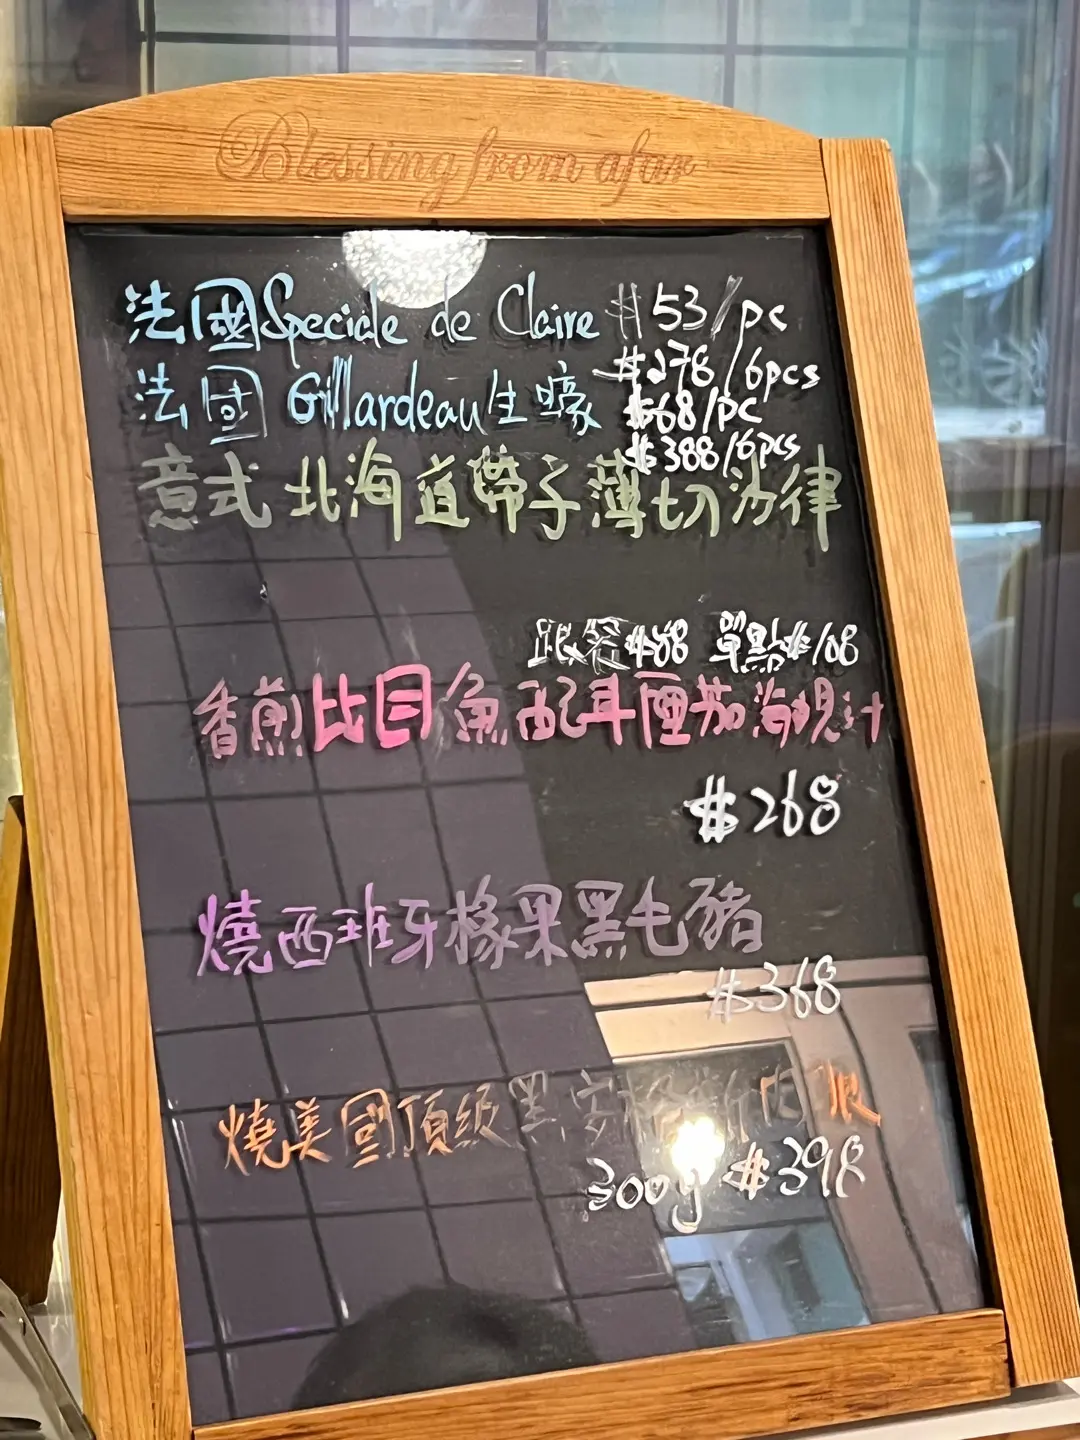 Blessing from afar
法國Speciale de Claire $53/pc
$278/6pcs
法国 Gillardeau生蠔 $68/pc
$388/6pcs
意式北海道帶子薄切沙律
跟餐$88 單點$108
香煎比目魚配耳厘茄海規汁
$268
燒西班牙橡果黑毛豬
$368
燒美國頂級黑安格斯肉眼
300g $398